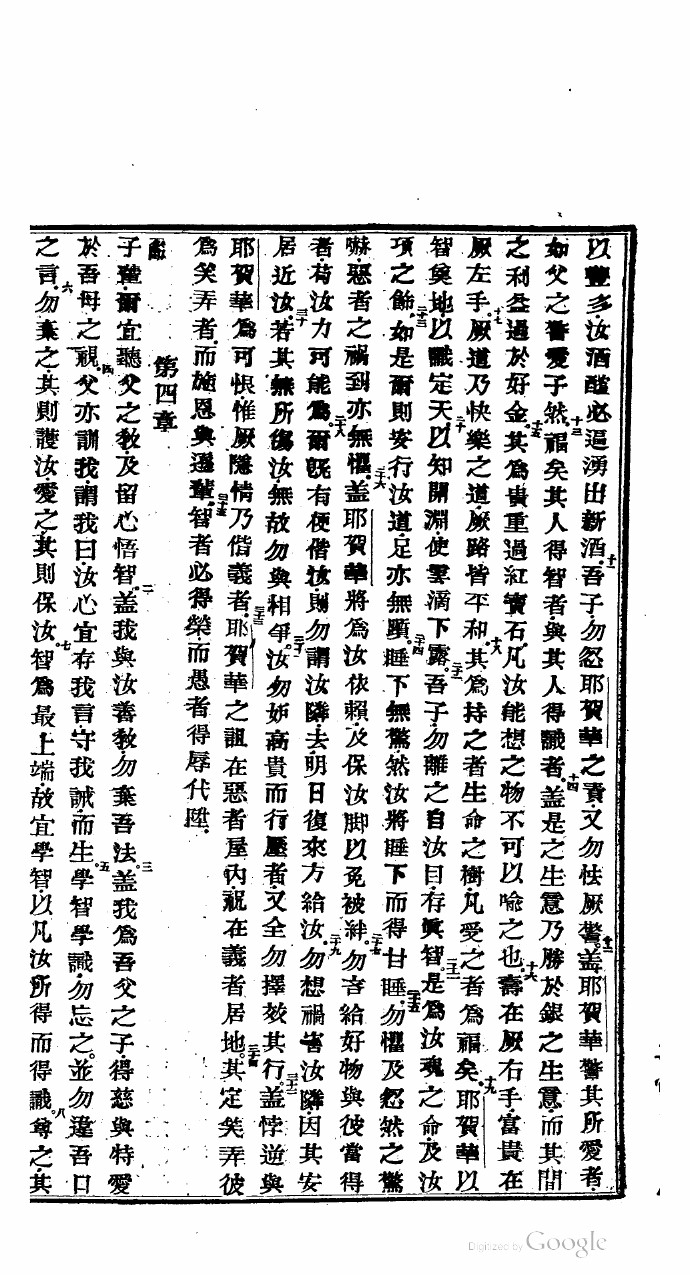 以豐多汝酒醡必逼湧出新酒十一吾子勿忽耶賀華之責又勿怯厥警十二盖耶賀華警其所愛者
如父之警愛子然十三福矣其人得智者與其人得識者十四盖是之生意乃勝於銀之生意而其間
之利益過於好金十五其為貴重過紅寶石凡汝能想之物不可以喻之也十六壽在厥右手富貴在
厥左手十七厥道乃快樂之道厥路皆平和十八其為持之者生命之樹凡受之者為福矣十九耶賀華以
智奠地以識定天二十以知開淵使雲滴下露二十一吾子勿離之自汝目存眞智二十二是為汝魂之命及汝
項之飾二十三如是爾則安行汝道足亦無躓二十四睡下無驚然汝將睡下而得甘睡二十五勿懼及忽然之驚
嚇惡者之禍到亦無懼二十六盖耶賀華將為汝依賴及保汝脚以免被絆二十七勿吝給好物與彼當得
者苟汝力可能為二十八爾既有便偕汝則勿謂汝隣去明日復來方給汝二十九勿想禍害汝隣因其安
居近汝三十若其無所傷汝無故勿與相爭三十一汝勿妒高貴而行壓者又全勿擇效其行三十二盖悖逆與
耶賀華為可恨惟厥隱情乃偕義者三十三耶賀華之詛在惡者屋內祝在義者居地三十四其定笑弄彼
為笑弄者而施恩與遜輩三十五智者必得榮而愚者得辱代陞
第四章
子輩爾宜聽父之敎及留心悟智二盖我與汝善敎勿棄吾法三盖我為吾父之子得慈與特愛
於吾母之視四父亦訓我謂我曰汝心宜存我言守我誡而生五學智學識勿忘之並勿違吾口
之言六勿棄之其則護汝愛之其則保汝七智為最上端故宜學智以凡汝所得而得識八尊之其
Digitized by Google